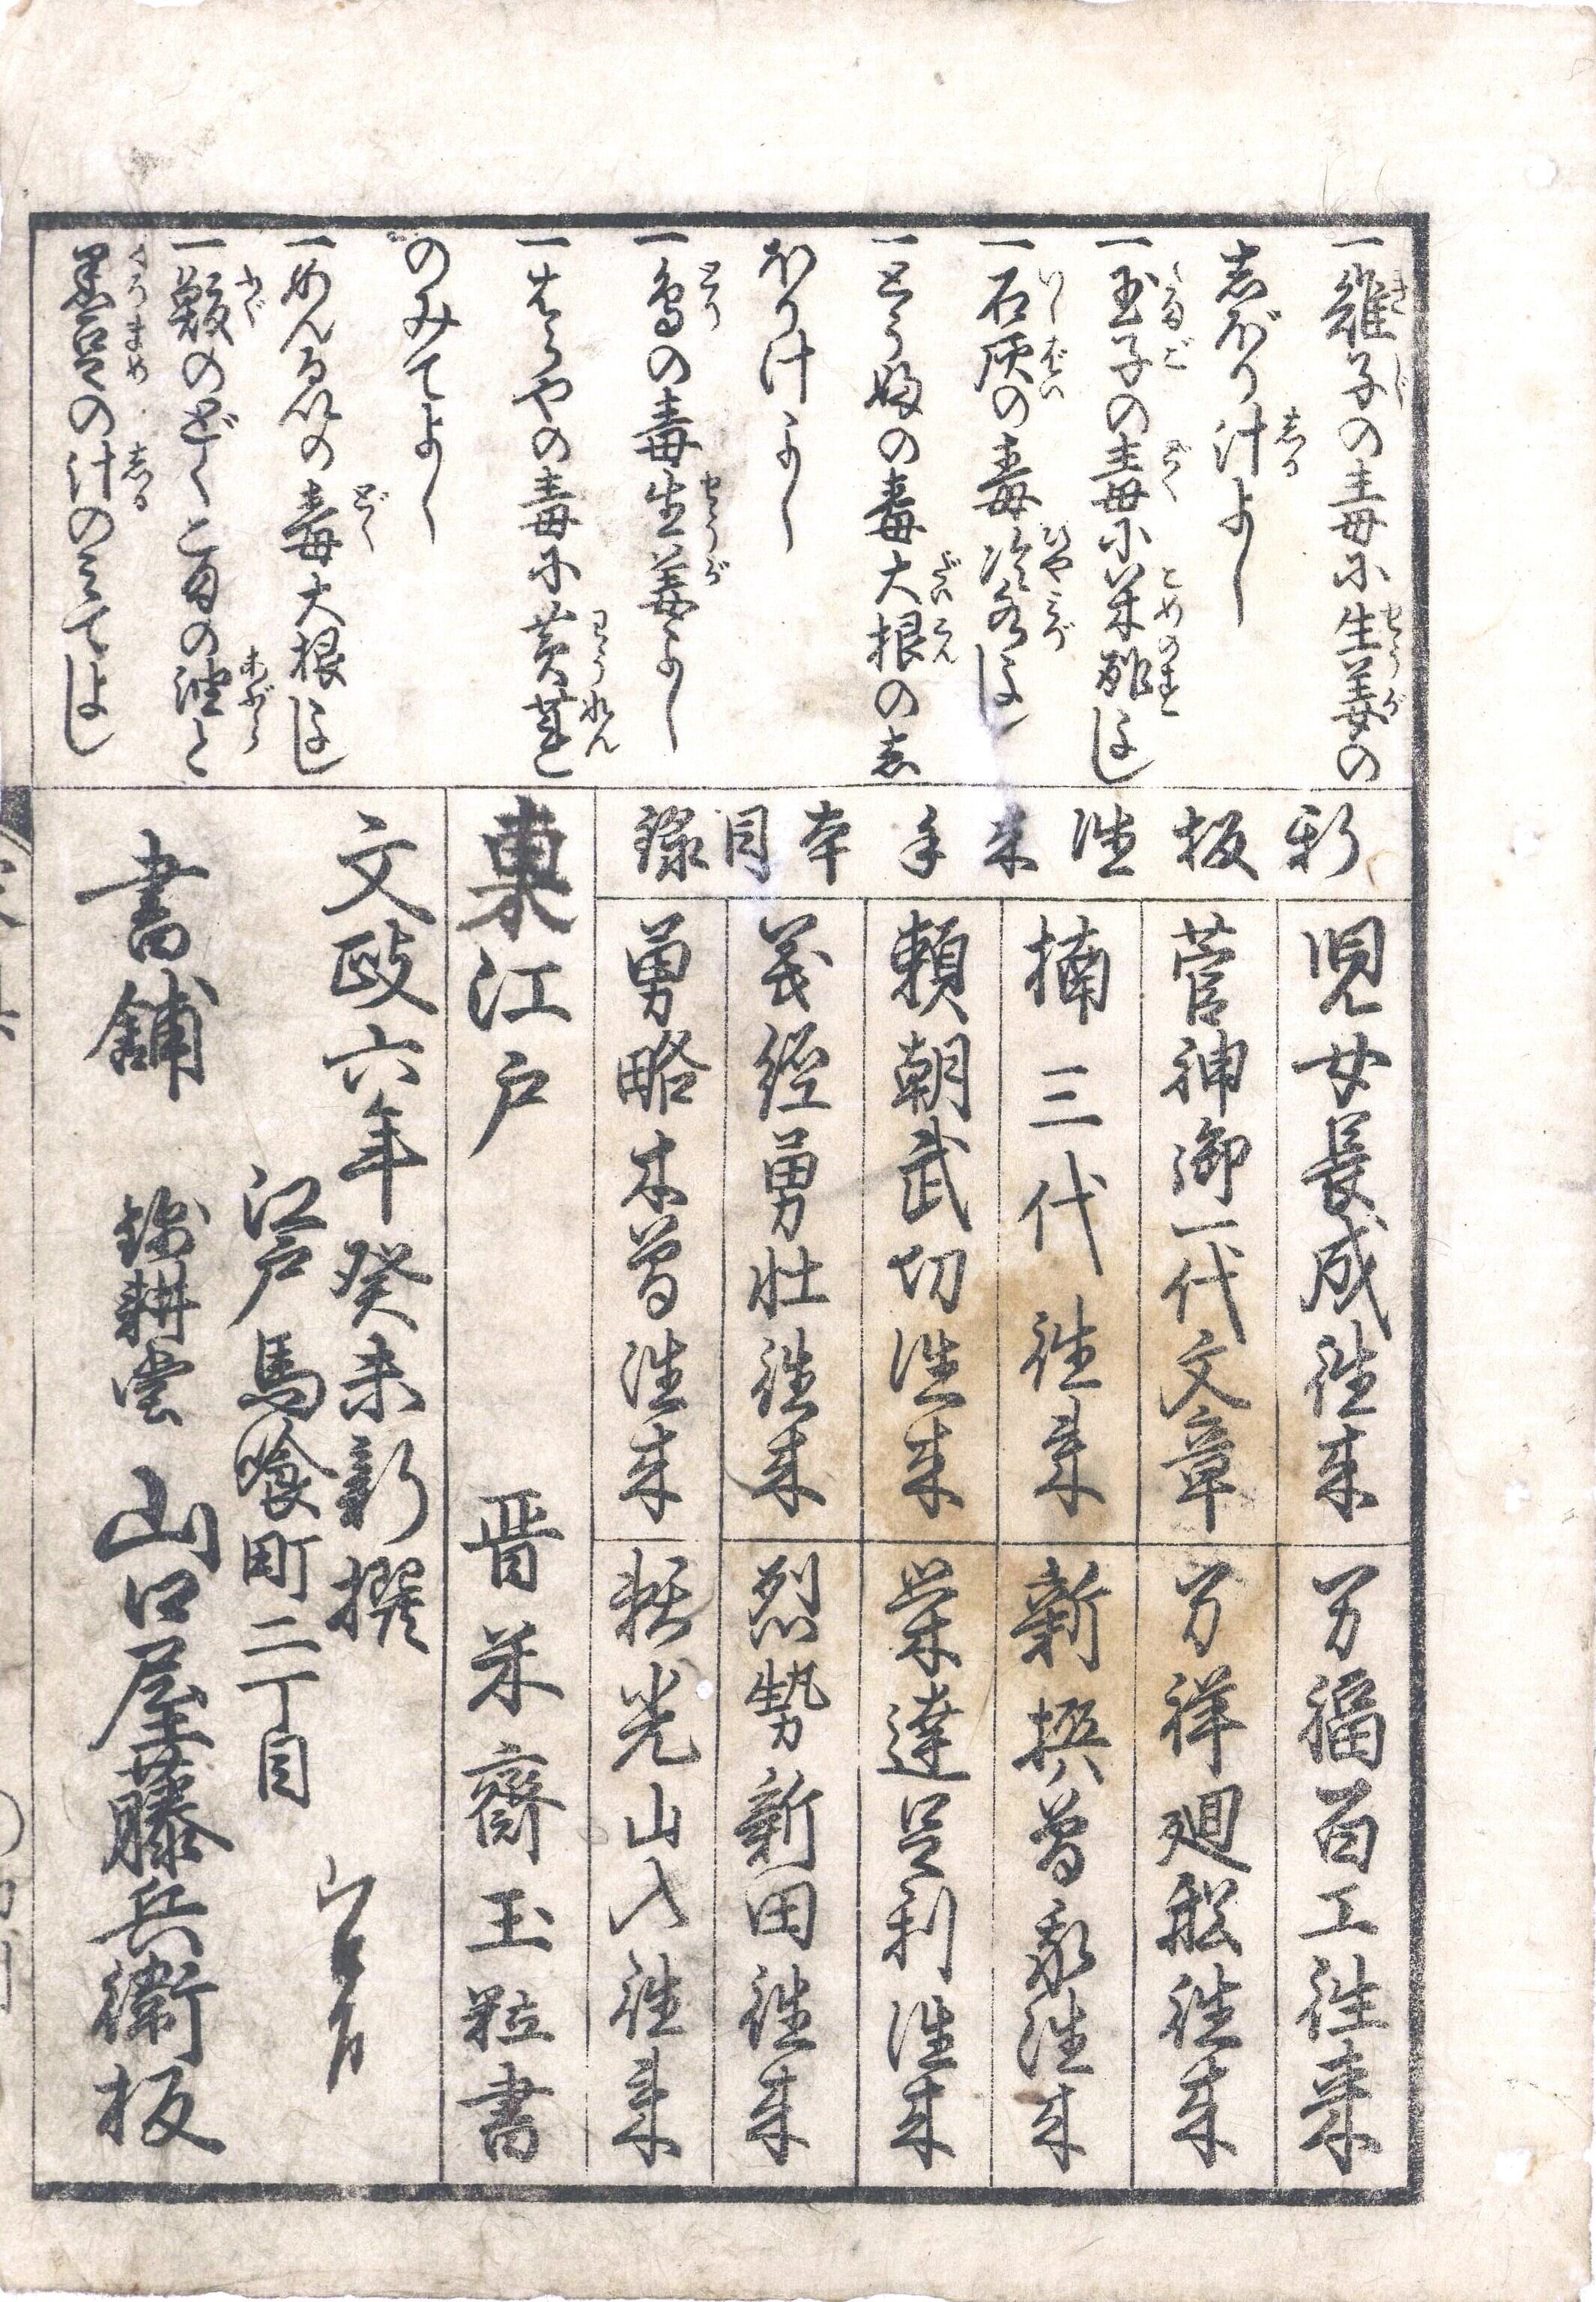 一雉子の毒に生姜の
しぼり汁よし
一玉子の毒に米酢よし
一石灰の毒冷水よし
一とうふの毒大根の志
ぼり汁よし
一鳥の毒生姜よし
一はらやの毒に黄連
のみてよし
一めんるいの毒大根よし
一鰒のどくごまの油と
黒豆の汁のみてよし
新板往来手本目録
児女長成往来
菅神御一代文章
楠三代往来
頼朝武功往来
義經勇壮往来
勇略木曽往来
万福百工往来
万祥廻舩往来
新撰曽我往来
栄達足利往来
烈勢新田往来
日光山入往来
東江戸
晋米齋玉粒書
文政六年癸未新撰
江戸馬喰町二丁目
書舗 錦耕堂 山口屋藤兵衛板